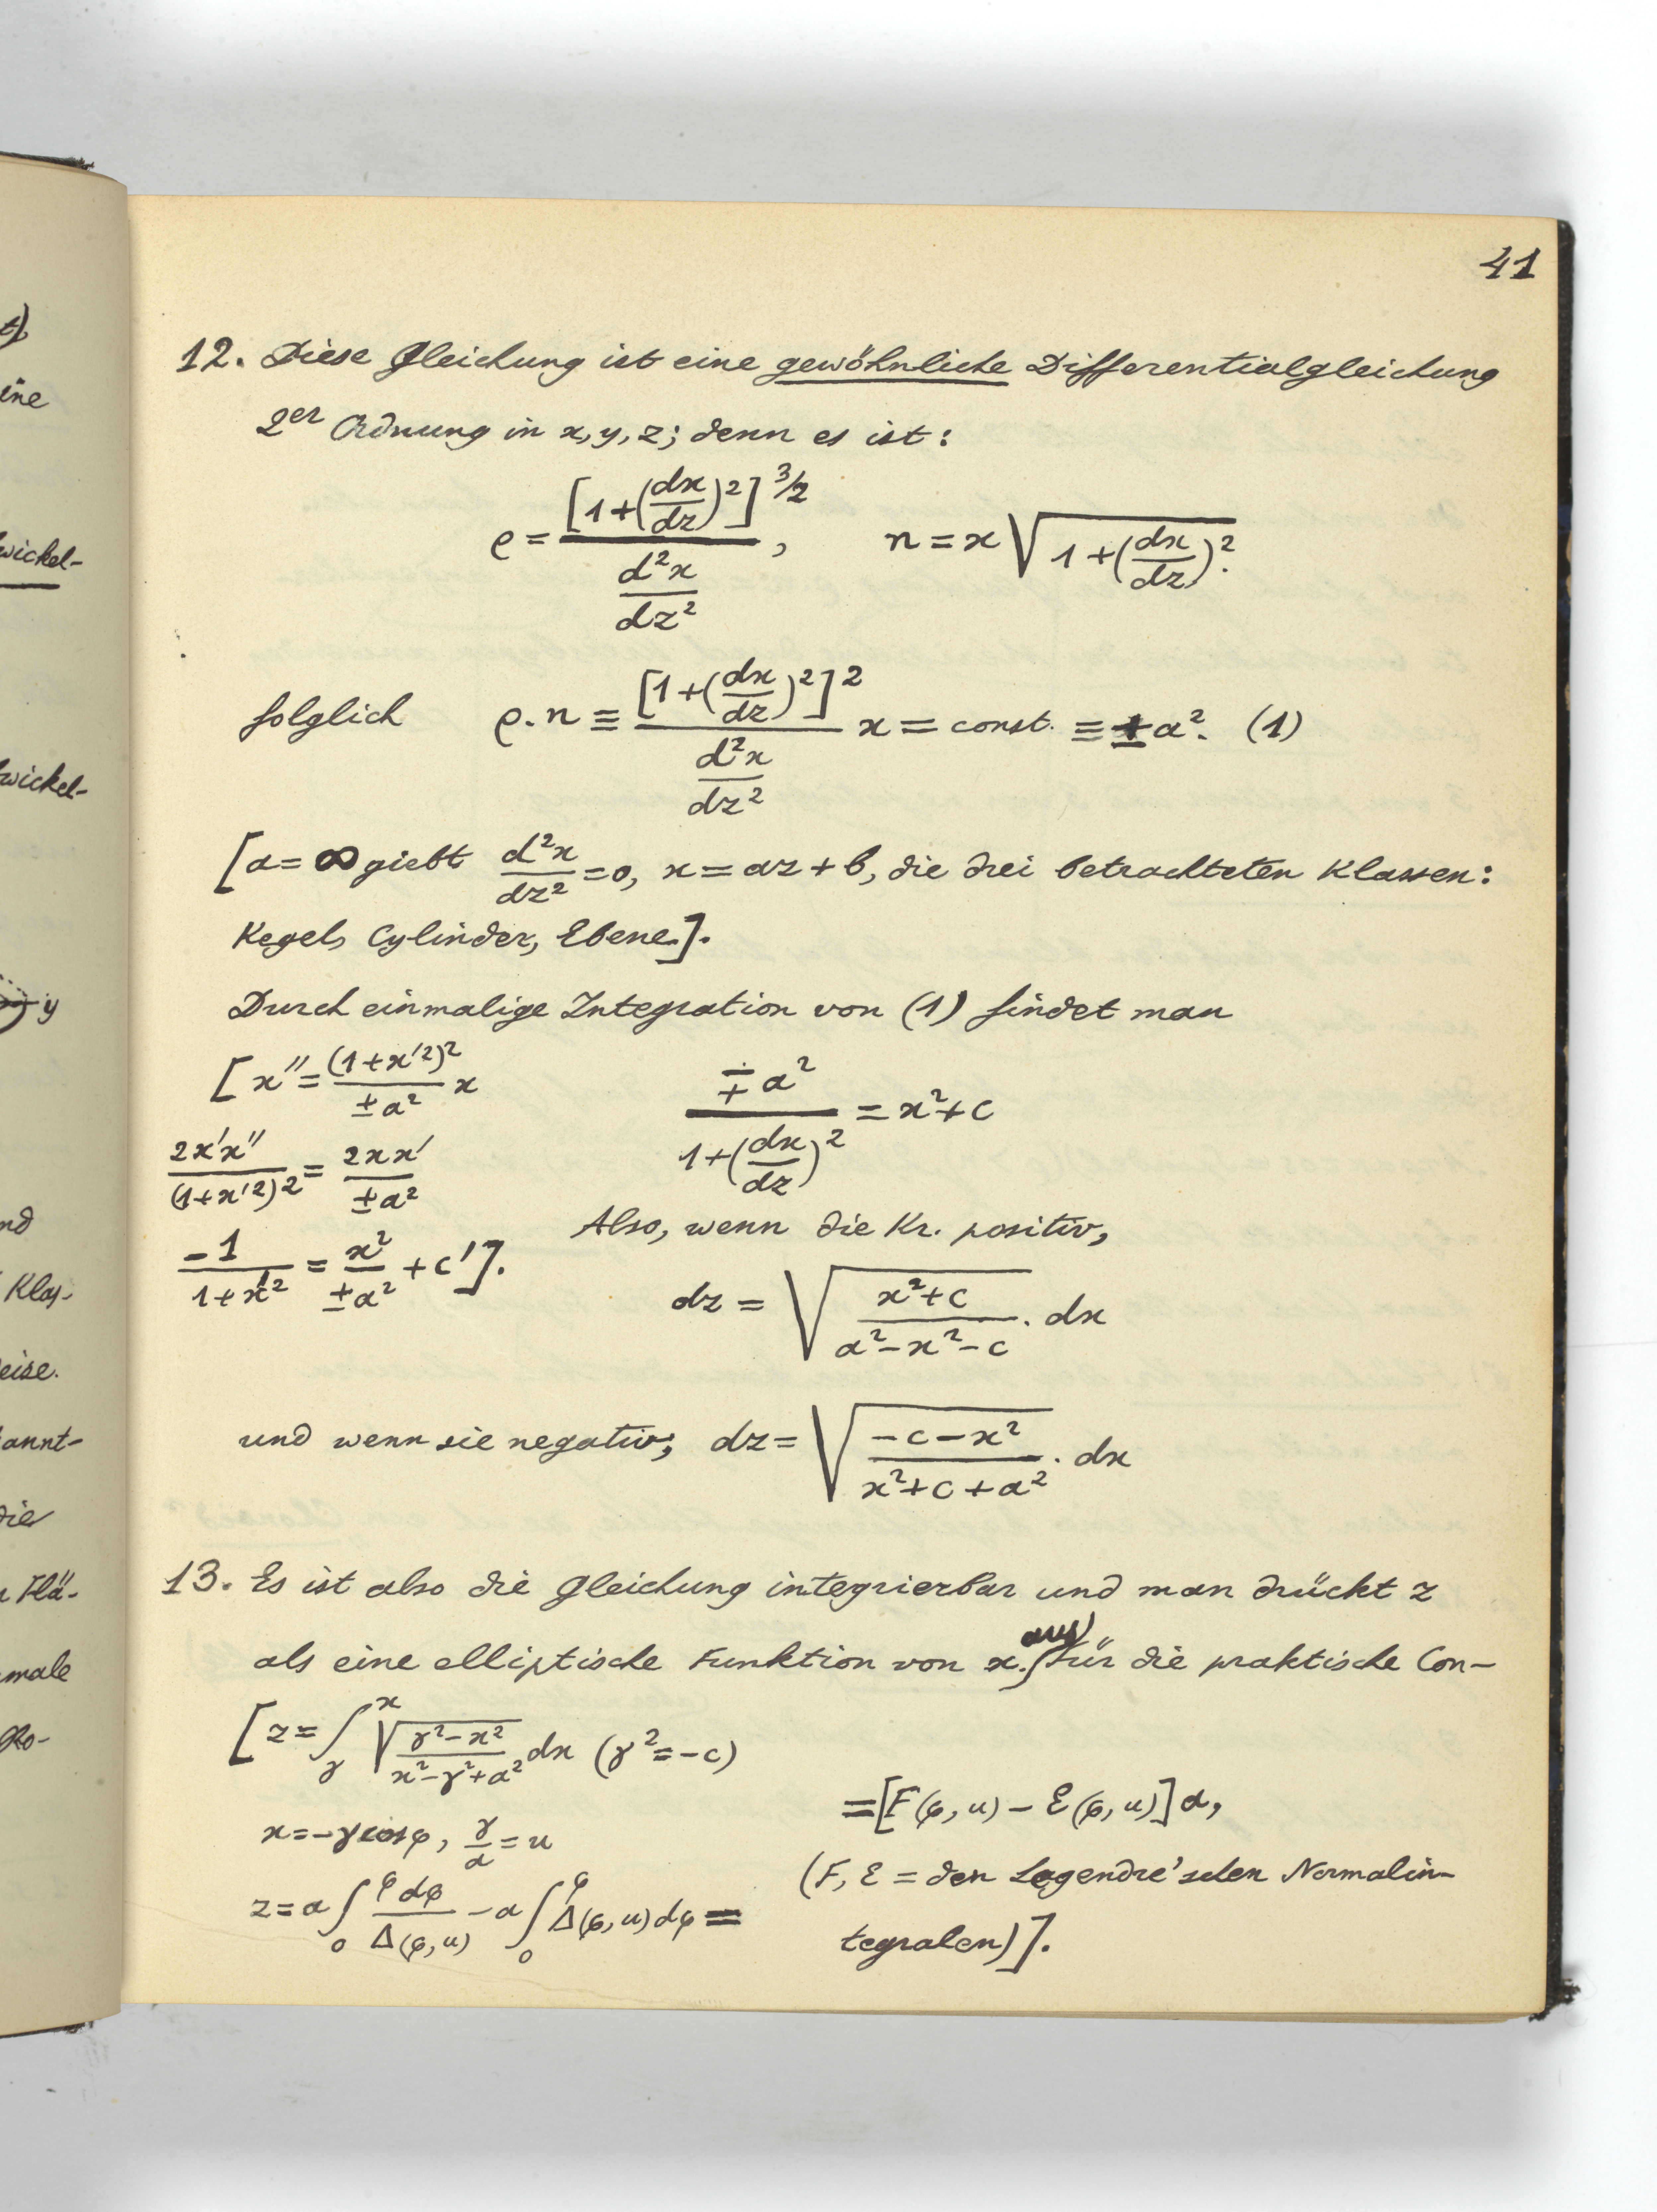 41
12. Diese Gleichung ist eine gewöhnliche Differentialgleichung
2er Ordnung in x, y, z; denn es ist:
ρ = [1+(dx/dz)²]^3/2 / (d²x/dz²), n = x √(1+(dx/dz)²).
folglich ρ.n ≡ [1+(dx/dz)²]² / (d²x/dz²) x = const. ≡ ±a². (1)
[a=∞ giebt d²x/dz² = 0, x = az + b, die drei betrachteten Klassen:
Kegel, Cylinder, Ebene.].
Durch einmalige Integration von (1) findet man
[x'' = (1+x'²)² / ±a² x
2x'x'' / (1+x'²)² = 2xx' / ±a²
-1 / 1+x'² = x² / ±a² + c'].
∓a² / 1+(dx/dz)² = x²+c
Also, wenn die Kr. positiv,
dz = √(x²+c / a²-x²-c) . dx
und wenn sie negativ; dz = √(-c-x² / x²+c+a²) . dx
13. Es ist also die Gleichung integrierbar und man drückt z
als eine elliptische Funktion von x. aus Für die praktische Con-
[z = ∫γ^x √(γ²-x² / x²-γ²+a²) dx (γ²=-c)
x = -γ cos φ, γ/a = u
z = a ∫0^φ dφ / Δ(φ,u) - a ∫0^φ Δ(φ,u) dφ =
= [F(φ,u) - E(φ,u)] a,
(F, E = den Legendre'schen Normalin-
tegralen)].
ine
wickel-
wickel-
y
nd
Klas-
eise.
annt-
die
Flä-
male
Ro-